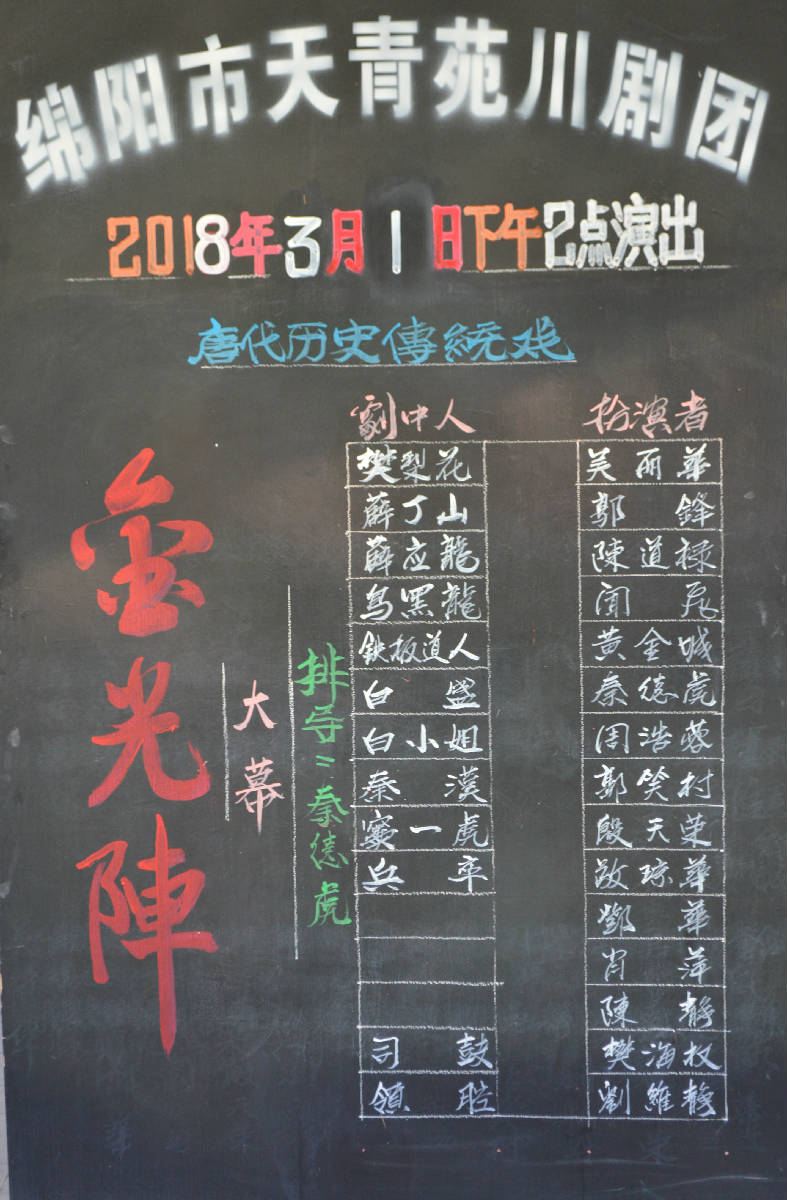 绵阳市天青苑川剧团
2018年3月1日下午2点演出
唐代历史傳統戏
金光陣
大幕
排导：秦德虎
劇中人 扮演者
樊梨花 吴丽華
薛丁山 郭鋒
薛应龍 陳道禄
乌黑龍
鉄板道人 黄金城
白盛 秦德虎
白小姐 周浩蓉
秦漢 郭笑村
窦一虎 殷天荣
兵卒 敬琼華
鄧華
肖萍
陳静
司鼓 樊海权
領腔 劉維静